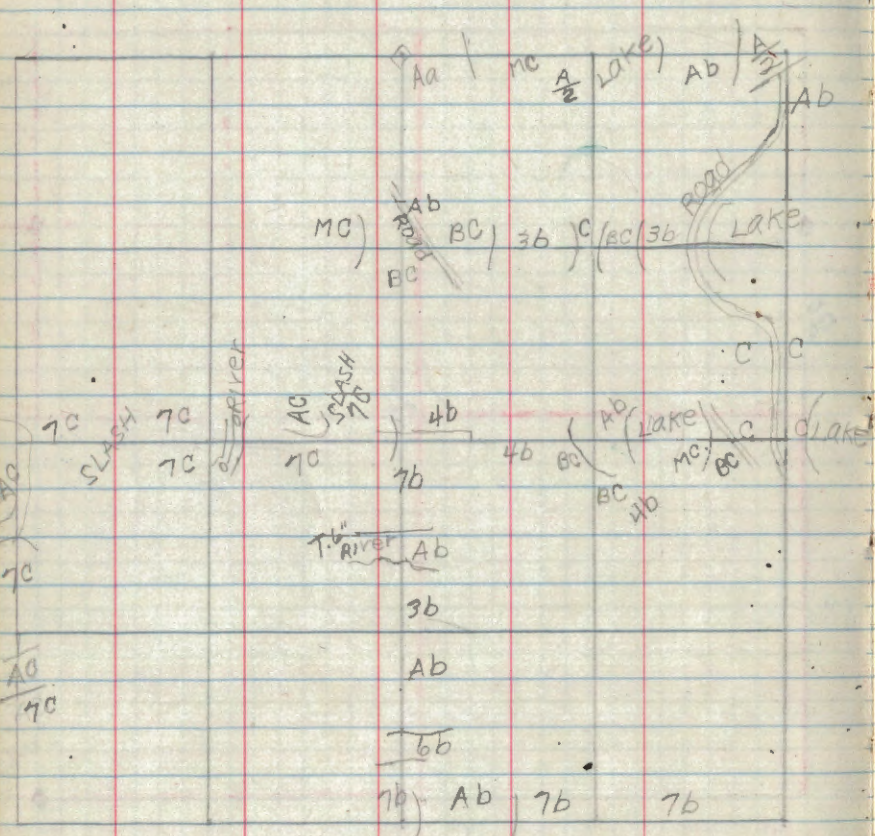 Aa MC A/2 Lake Ab A/12
Ab
Road
Ab
MC ROAD BC 3b C BC 3b Lake
BC
C C
River AC SLASH 7C
7C SLASH 7C 4b Ab Lake C C Lake
AC 7C 7C 7b 4b BC MC BC
BC 4b
T.6" River Ab
7C
3b
AC Ab
7C
6b
7b Ab 7b 7b